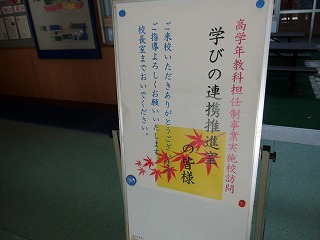 高学年教科担任制事業実施校訪問
学びの連携推進室
の皆様
ご来校いただきありがとうございます。
ご指導よろしくお願いいたします。
校長室までおいでください。